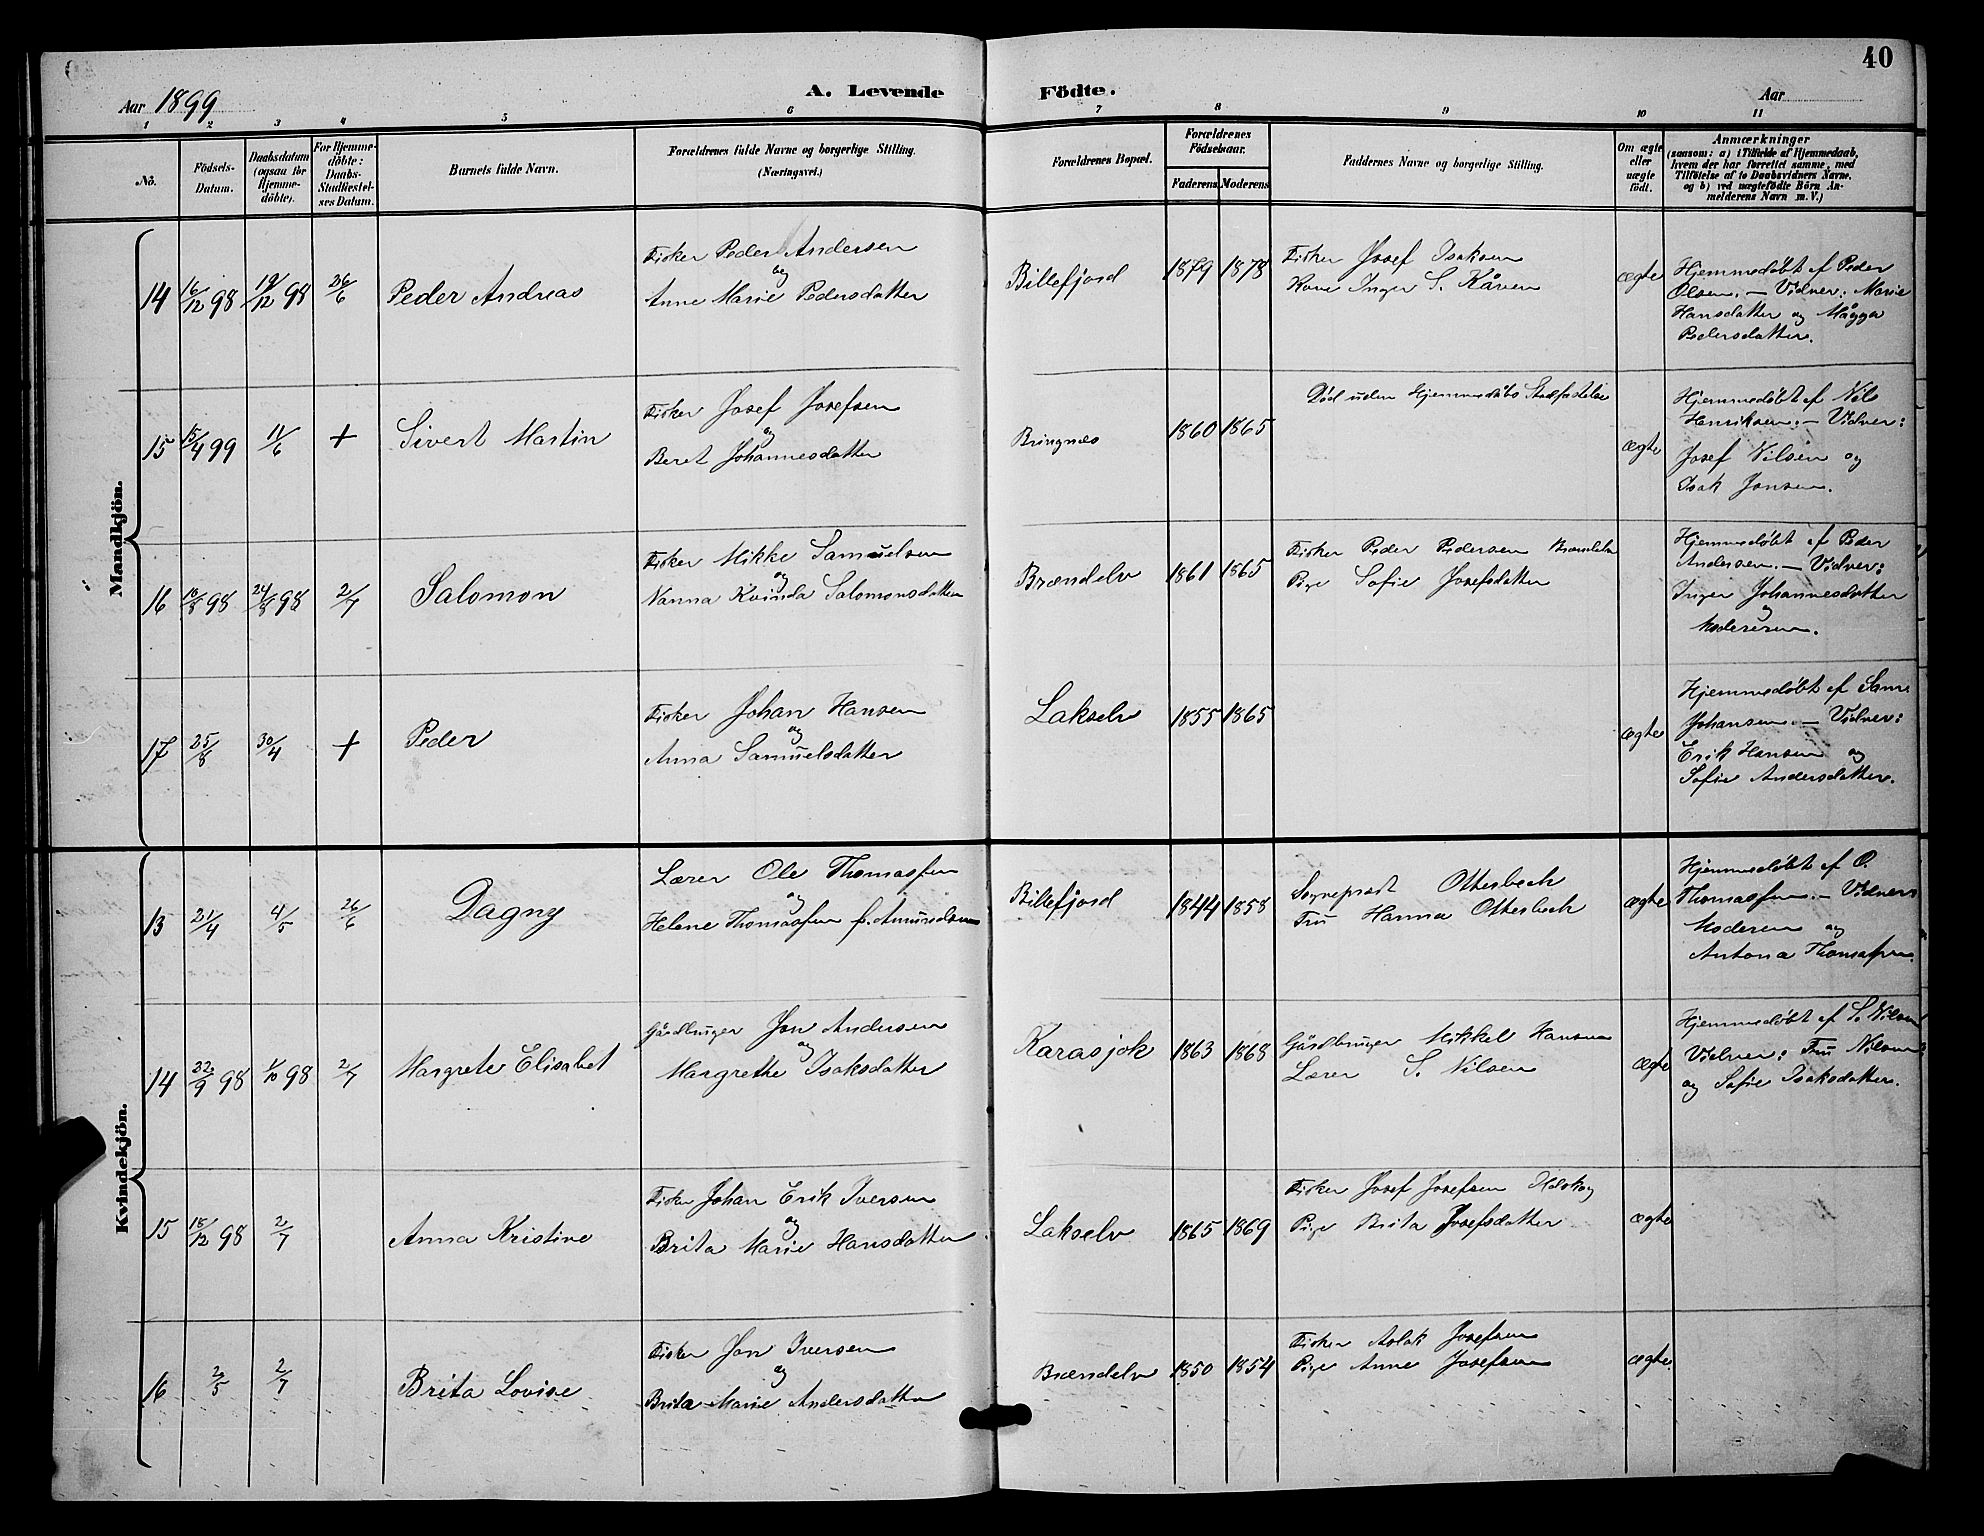 40
Aar 1899
A. Levende Födte.
Aar
1 2 3 4 5 6 7 8 9 10 11
Nö.
Födsels-Datum.
Daabsdatum (ogsaa for Hjemme-döbte).
For Hjemme-döbte: Daabs-Stadfæstel-ses Datum.
Barnets fulde Navn.
Forældrenes fulde Navne og borgerlige Stilling. (Næringsvei.)
Forældrenes Bopæl.
Forældrenes Födselsaar.
Faderens Moderens
Faddernes Navne og borgerlige Stilling.
Om ægte eller uægte födt.
Anmærkninger
(saasom: a) i Tilfælde af Hjemmedaab, hvem der har forrettet samme, med Tilföielse af to Daabsvidners Navne, og b) ved uægtefödte Börn An-melderens Navn m. V.)
Mandkjön.
14 16/12 98 19/12 98 26/6 Peder Andreas
Fisker Peder Andersen
og
Anne Marie Pedersdatter
Billefjord 1879 1878
Fisker Josef Isaksen
Kone Inger S. Kåven
ægte
Hjemmedøbt af Peder
Olsen. — Vidner: Marie
Hansdatter og Mågga
Pedersdatter.
15 15/4 99 11/6 + Sivert Martin
Fisker Josef Josefsen
og
Beret Johannesdatter
Bringnæs 1860 1865
Død uden Hjemmedåbs Stadfæstelse
ægte
Hjemmedøbt af Nils
Henriksen. — Vidner:
Josef Nilsen og
Isak Jonsen.
16 16/8 98 24/8 98 2/7 Salomon
Fisker Mikke Samuelsen
og
Nanna Kvinda Salomonsdatter
Brændelv 1861 1865
Fisker Peder Pedersen Brændelv
Pige Sofie Josefsdatter
Hjemmedøbt af Peder
Andersen. — Vidner:
Inger Johannesdatter
og
Moderen.
17 25/8 30/4 + Peder
Fisker Johan Hansen
og
Anna Samuelsdatter
Lakselv 1855 1865
ægte
Hjemmedøbt af Sam.
Johansen. — Vidner:
Erik Hansen og
Sofie Andersdatter.
Kvindekjön.
13 21/4 4/5 26/6 Dagny
Lærer Ole Thomassen
og
Helene Thomassen f. Amundsen
Billefjord 1844 1858
Sogneprest Otterbech
Fru Hanna Otterbech
ægte
Hjemmedøbt af O.
Thomassen. — Vidner:
Moderen og
Antona Thomassen.
14 98 1/10 98 2/7 Margrete Elisabet
Gårdbruger Jon Andersen
og
Margrethe Isaksdatter
Karasjok 1863 1868
Gårdbruger Mikkel Hansen
Lærer S. Nilsen
ægte
Hjemmedøbt af S. Nilsen
Vidner: Fru Nilsen
og Sofie Isaksdatter.
15 18/12 98 2/7 Anna Kristine
Fisker Johan Erik Iversen
og
Brita Marie Hansdatter
Lakselv 1865 1869
Fisker Josef Josefsen
Pige Brita Josefsdatter
ægte
16 2/5 2/7 Brita Lovise
Fisker Jon Iversen
og
Brita Marie Andersdatter
Brændelv 1850 1854
Fisker Aslak Josefsen
Pige Anne Josefsen
ægte